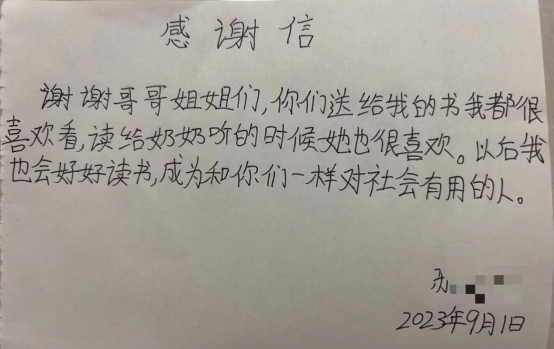 感谢信
谢谢哥哥姐姐们,你们送给我的书我都很
喜欢看,读给奶奶听的时候她也很喜欢。以后我
也会好好读书,成为和你们一样对社会有用的人。
2023年9月1日